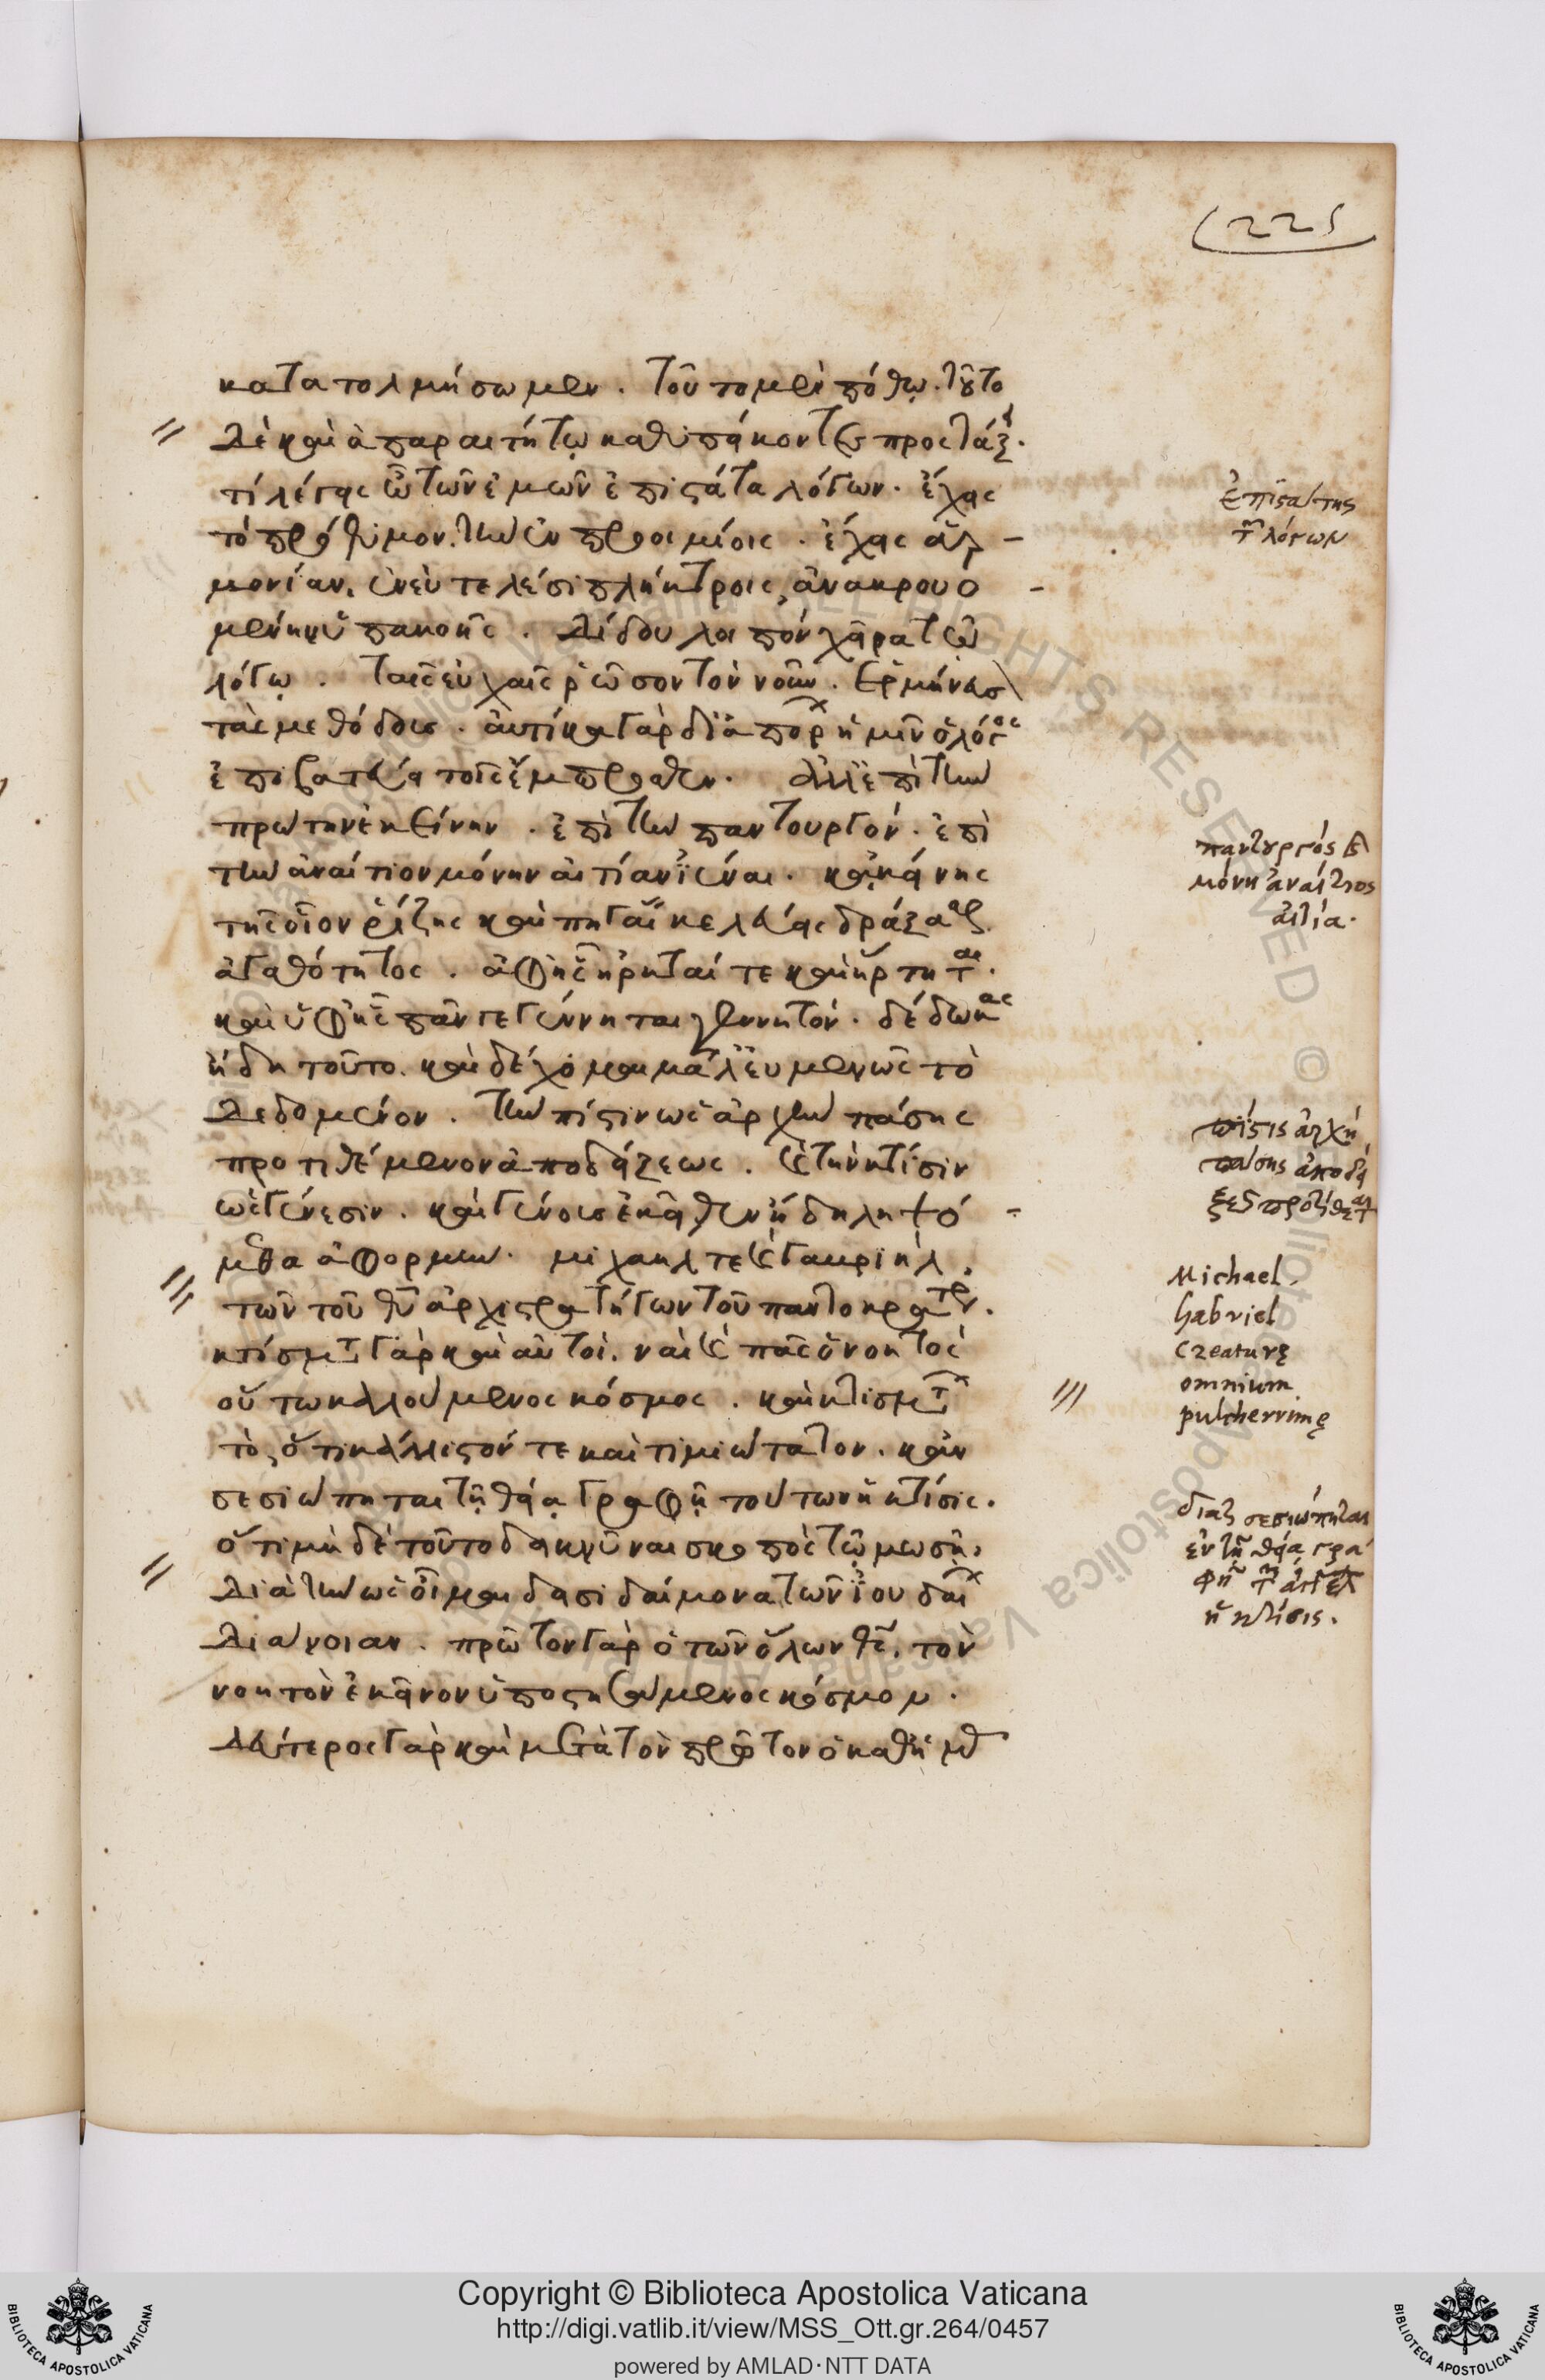 (225
κατατολμήσωμεν . τοῦτο μὲν πόθῳ . τοῦτο
δὲ καὶ ἀπαραιτήτῳ καθυπείκοντες προστάξει .
τί λέγεις ὦ τῶν ἐμῶν ἐπιστάτα λόγων . ἔχεις
τὸ πρόθυμον . τὴν ἐν προοιμίοις . ἔχεις ἁρ -
μονίαν . πλήκτροις ἀνακρουο -
μένην ὑπακοῆς . δίδου λοιπὸν χεῖρα τῷ
λόγῳ . ταῖς εὐχαῖς ῥῶσον τὸν νοῦν .
τὰς μεθόδους . αὐτίκα γὰρ ἡμῖν ὁ λόγος
τοῖς ἔμπροσθεν . ἀλλ' ἐπὶ τὴν
πρώτην ἐκείνην . ἐπὶ τὴν παντουργόν . ἐπὶ
τὴν ἀναίτιον μόνην αἰτίαν ἰέναι . κἀκείνης
τῆς οἷον ῥίζης καὶ πηγαί
ἀγαθότητος . ἀφ' ἧς ἤρηταί τε καὶ ἤρτηται .
καὶ ὑφ' ἧς πᾶν γεγέννηται γεννητόν . δέδωκας
ἤδη τοῦτο . καὶ δέχομαι μάλ' εὐμενῶς τὸ
δεδομένον . τὴν πίστιν ὡς ἀρχὴν πάσης
προτιθέμενον ἀποδείξεως . καὶ τὴν κτίσιν
ὡς γένεσιν . καὶ γένους ἐκεῖθεν ἤδη ληψό -
μεθα ἀφορμήν . μιχαὴλ τε καὶ γαυριὴλ ,
τῶν τοῦ θῦ ἀρχιστρατήγων τοῦ παντοκράτορος .
κτίσματα γὰρ καὶ αὐτοί . ναὶ καὶ πᾶς ὁ νοητὸς
οὕτω καλούμενος κόσμος . καὶ κτισμάτων
τὸ ὅτι κάλλιστόν τε καὶ τιμιώτατον . κἂν
σεσιώπηται τῇ θείᾳ γραφῇ τούτων ἡ κτίσις .
ὅτι μὴ δὲ τοῦτο δεικνῦναι σκοπὸς τῷ μωσῇ ,
διὰ τὴν ὡς οἶμαι δεισιδαίμονα τῶν ἰουδαίων
διάνοιαν . πρῶτον γὰρ ὁ τῶν ὅλων θς , τὸν
νοητὸν ἐκεῖνον ὑποστησάμενος κόσμον .
δεύτερος γὰρ καὶ μετὰ τὸν πρῶτον ὁ καθ' ἡμᾶς
ἐπιστάτης
τῶν λόγων
παντουργός καὶ
μόνη ἀναίτιος
αἰτία .
πίστις ἀρχή
πάσης ἀποδεί
ξεως προτίθεται
Michael .
Gabriel
creaturę
omnium
pulcherrimę
διατί σεσιώπηται
ἐν τῇ θείᾳ γρα
φῇ τῶν ἀγγέλων
ἡ κτίσις .
Copyright © Biblioteca Apostolica Vaticana
http://digi.vatlib.it/view/MSS_Ott.gr.264/0457
powered by AMLAD·NTT DATA